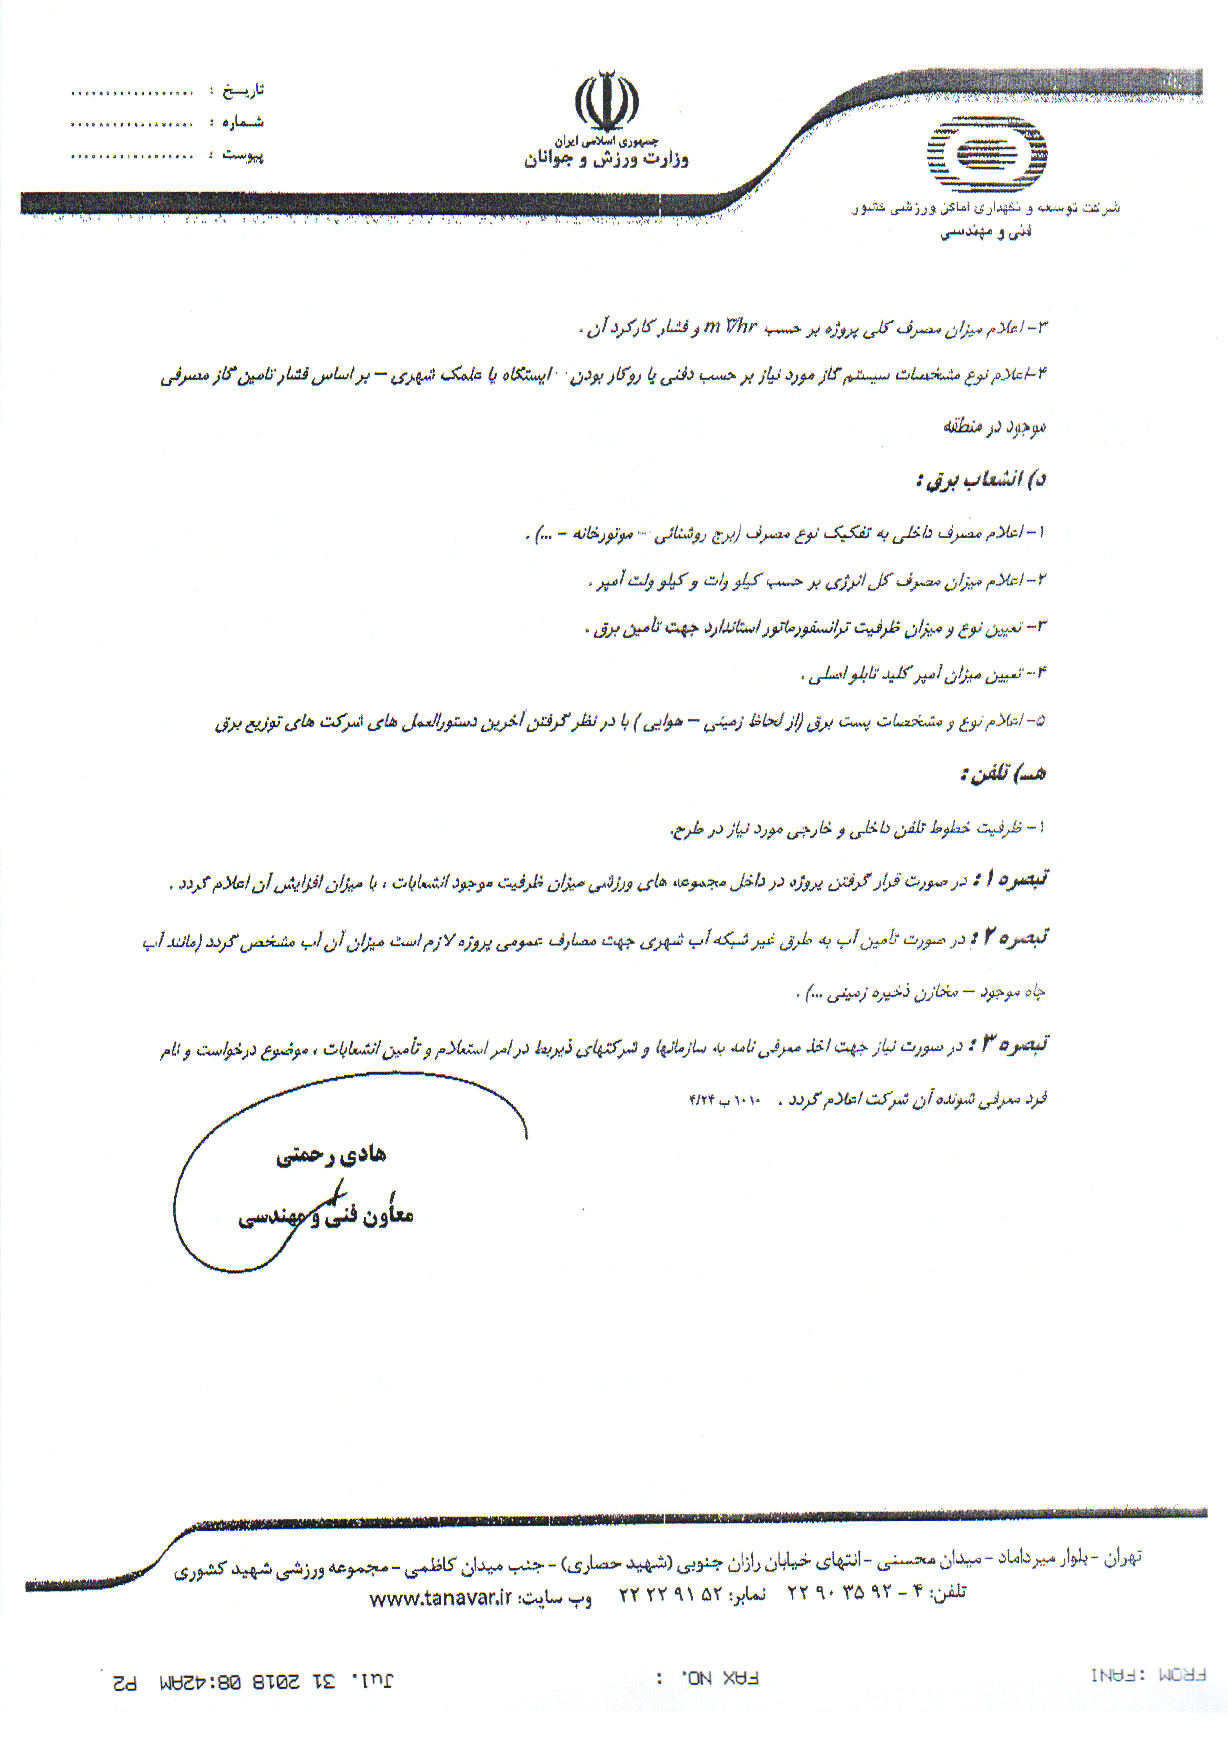 تاریخ : ..................
شماره : ..................
پیوست : ..................
جمهوری اسلامی ایران
وزارت ورزش و جوانان
شرکت توسعه و نگهداری اماکن ورزشی کشور
فنی و مهندسی
۳- اعلام میزان مصرف کلی پروژه بر حسب m۳/hr و فشار کارکرد آن .
۴-اعلام نوع مشخصات سیستم گاز مورد نیاز بر حسب دفنی یا روکار بودن - ایستگاه یا علمک شهری – بر اساس فشار تامین گاز مصرفی
موجود در منطقه
د) انشعاب برق :
۱- اعلام مصرف داخلی به تفکیک نوع مصرف (برج روشنائی - موتورخانه - ...) .
۲- اعلام میزان مصرف کل انرژی بر حسب کیلو وات و کیلو ولت آمپر .
۳- تعیین نوع و میزان ظرفیت ترانسفورماتور استاندارد جهت تأمین برق .
۴- تعیین میزان آمپر کلید تابلو اصلی .
۵- اعلام نوع و مشخصات پست برق (از لحاظ زمینی – هوایی ) با در نظر گرفتن آخرین دستورالعمل های شرکت های توزیع برق
هـ) تلفن :
۱- ظرفیت خطوط تلفن داخلی و خارجی مورد نیاز در طرح.
تبصره ۱ : در صورت قرار گرفتن پروژه در داخل مجموعه های ورزشی میزان ظرفیت موجود انشعابات ، یا میزان افزایش آن اعلام گردد .
تبصره ۲ : در صورت تأمین آب به طرق غیر شبکه آب شهری جهت مصارف عمومی پروژه لازم است میزان آن آب مشخص گردد (مانند آب
چاه موجود – مخازن ذخیره زمینی ...) .
تبصره ۳ : در صورت نیاز جهت اخذ معرفی نامه به سازمانها و شرکتهای ذیربط در امر استعلام و تأمین انشعابات ، موضوع درخواست و نام
فرد معرفی شونده آن شرکت اعلام گردد . ۱۰۱۰ ب ۴/۲۴
هادی رحمتی
معاون فنی و مهندسی
تهران - بلوار میرداماد - میدان محسنی - انتهای خیابان رازان جنوبی (شهید حصاری) - جنب میدان کاظمی - مجموعه ورزشی شهید کشوری
تلفن: ۴ - ۹۲ ۳۵ ۹۰ ۲۲ نمابر: ۵۲ ۹۱ ۲۲ ۲۲ وب سایت: www.tanavar.ir
FROM :FANI FAX NO. : Jul. 31 2018 08:42AM P2